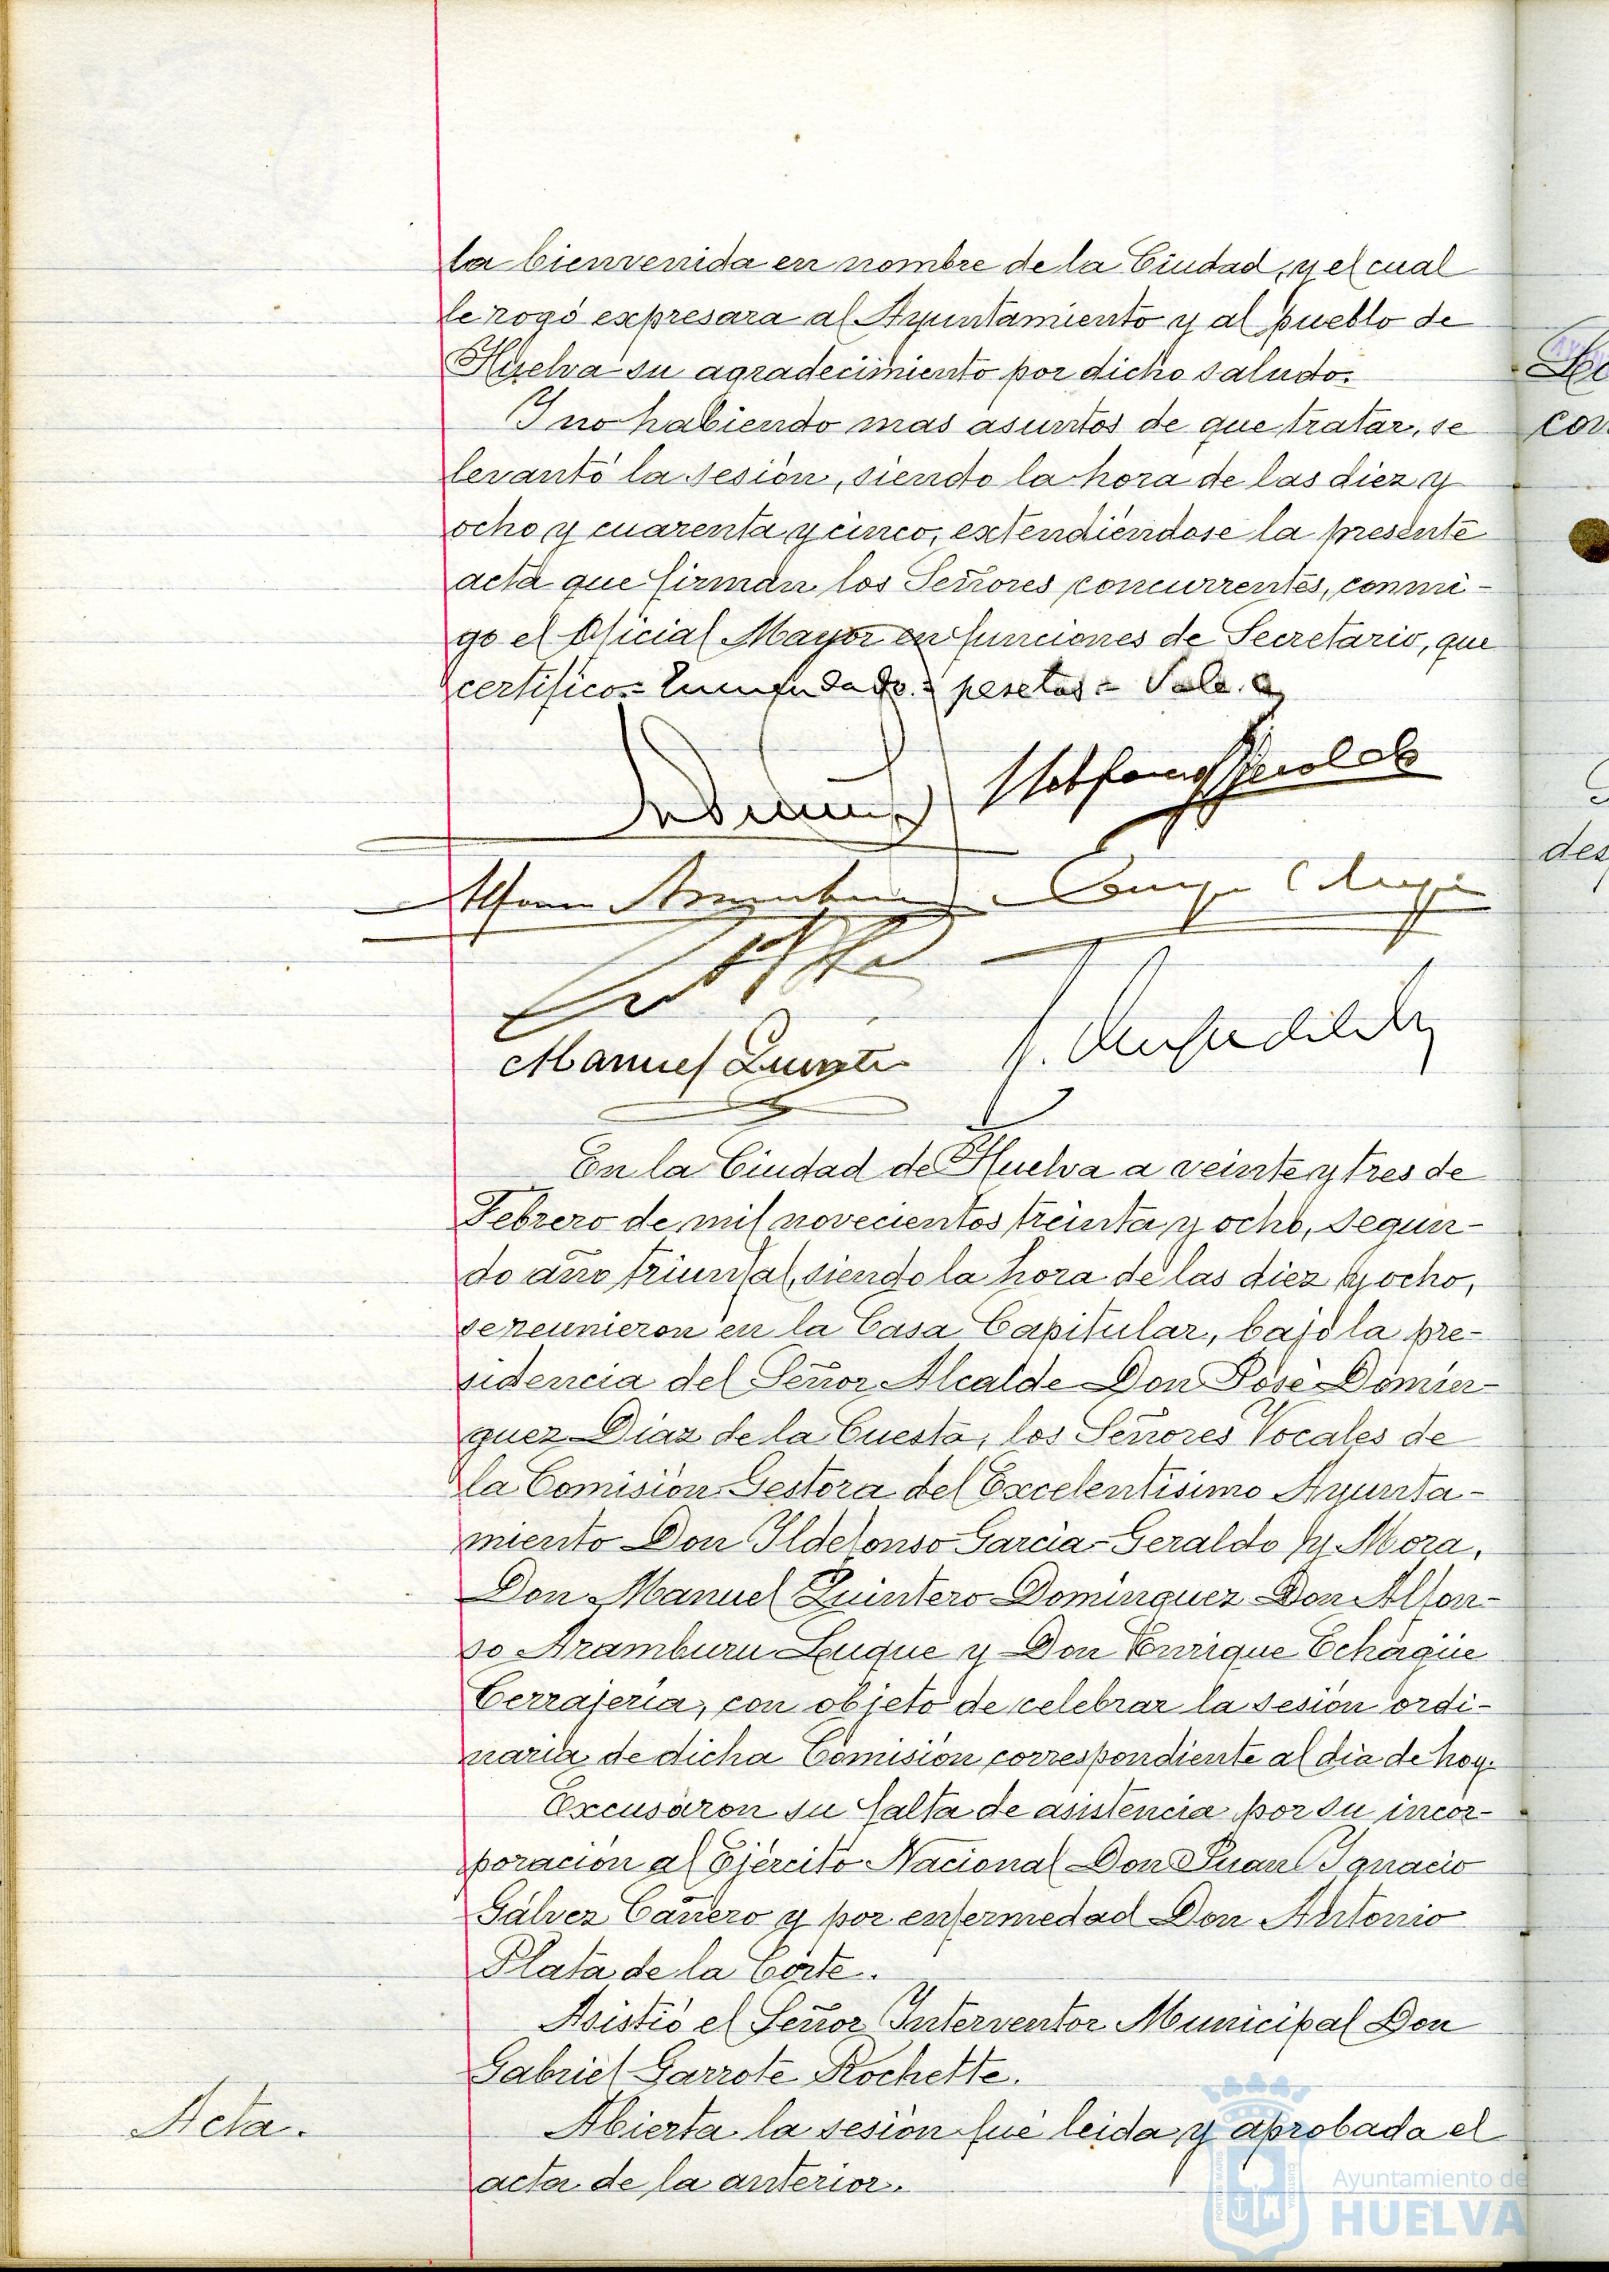 la bienvenida en nombre de la Ciudad, y el cual
le rogó expresara al Ayuntamiento y al pueblo de
Huelva su agradecimiento por dicho saludo.
Y no habiendo mas asuntos de que tratar, se
levantó la sesión, siendo la hora de las diez y
ocho y cuarenta y cinco, extendiéndose la presente
acta que firman los Señores concurrentes, conmi-
go el Oficial Mayor en funciones de Secretario, que
certifico= Enmendado.= pesetas = Vale.
Manuel Quintero
En la Ciudad de Huelva a veinte y tres de
Febrero de mil novecientos treinta y ocho, segun-
do año triunfal, siendo la hora de las diez y ocho,
se reunieron en la Casa Capitular, bajo la pre-
sidencia del Señor Alcalde Don José Domín-
guez Diaz de la Cuesta, los Señores Vocales de
la Comisión Gestora del Excelentísimo Ayunta-
miento Don Ildefonso García-Geraldo y Mora,
Don Manuel Quintero Dominguez Don Alfon-
so Aramburu Luque y Don Enrique Echagüe
Cerrajería, con objeto de celebrar la sesión ordi-
naria de dicha Comisión correspondiente al dia de hoy.
Excusaron su falta de asistencia por su incor-
poración al Ejército Nacional Don Juan Ignacio
Gálvez Cañero y por enfermedad Don Antonio
Plata de la Corte.
Asistió el Señor Interventor Municipal Don
Gabriel Garrote Rochette.
Acta.
Abierta la sesión fué leida y aprobada el
acta de la anterior.
Ayuntamiento de
HUELVA